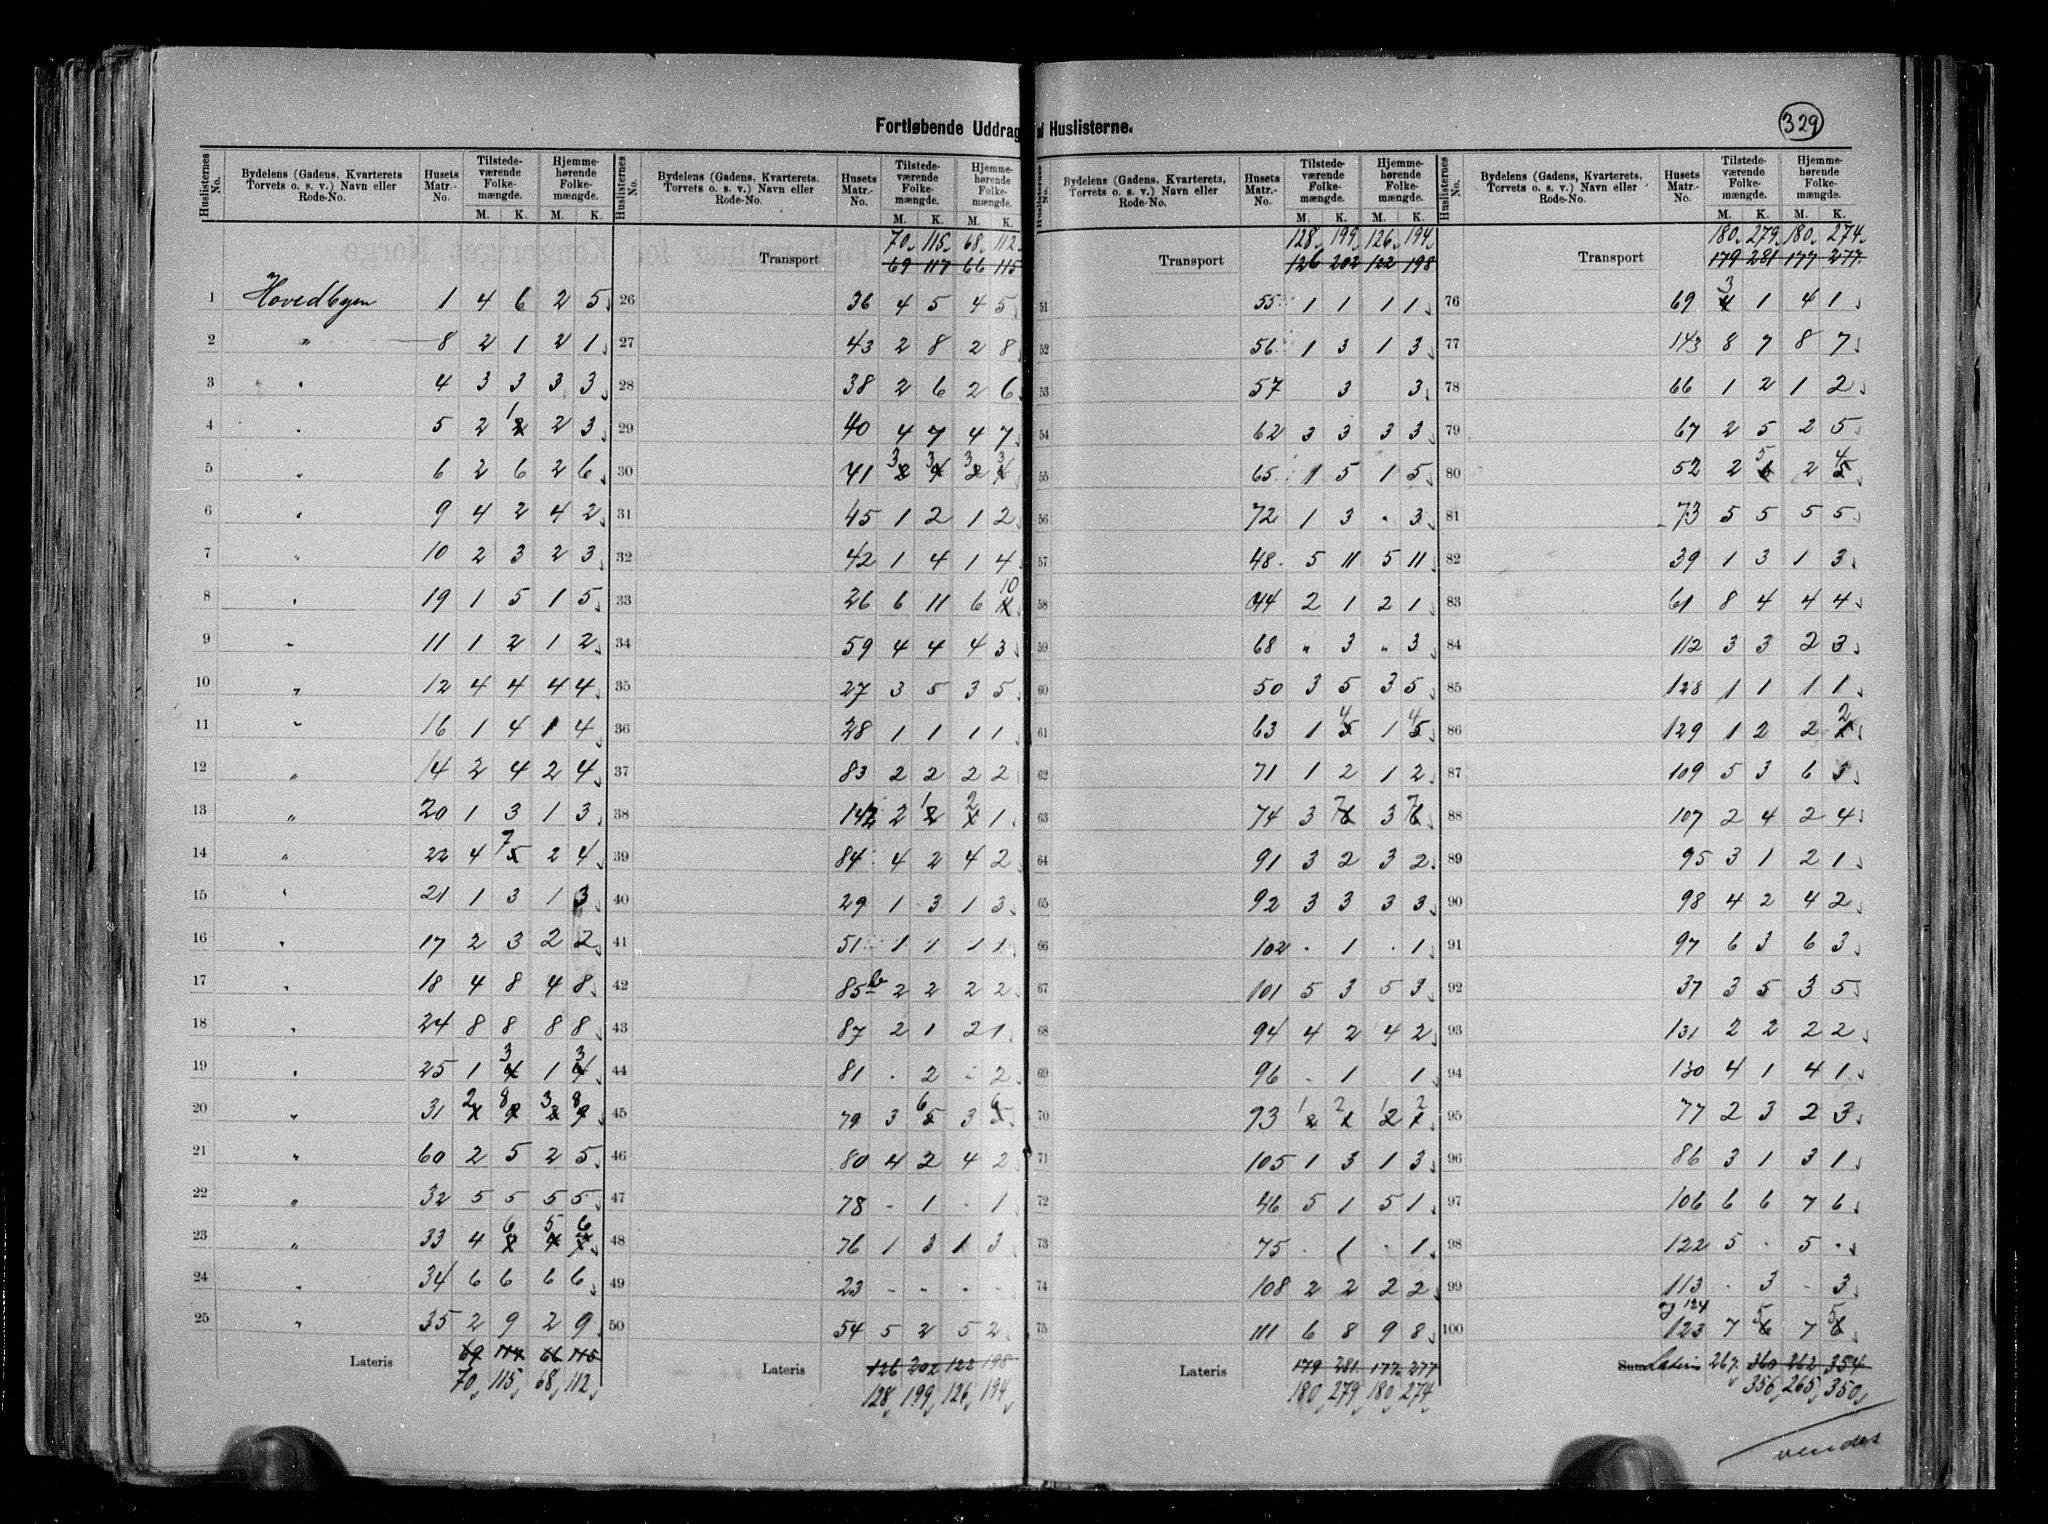 Fortløbende Uddrag af Huslisterne.
329
Huslisternes No. | Bydelens (Gadens, Kvarterets, Torvets o. s. v.) Navn eller Rode-No. | Husets Matr.-No. | Tilstedeværende Folkemængde. M. K. | Hjemmehørende Folkemængde. M. K.
1 Hovedbyen 1 4 6 2 5
2 " 8 2 1 2 1
3 " 4 3 3 3 3
4 " 5 2 1 2 2 3
5 " 6 2 6 2 6
6 " 9 4 2 4 2
7 " 10 2 3 2 3
8 " 19 1 5 1 5
9 " 11 1 2 1 2
10 " 12 4 4 4 4
11 " 16 1 4 1 4
12 " 14 2 4 2 4
13 " 20 1 3 1 3
14 " 22 4 7 5 2 4
15 " 21 1 3 1 3
16 " 17 2 3 2 2
17 " 18 4 8 4 8
18 " 24 8 8 8 8
19 " 25 1 3 4 1 3 4
20 " 31 2 8 3 8
21 " 60 2 5 2 5
22 " 32 5 5 5 5
23 " 33 4 6 5 6
24 " 34 6 6 6 6
25 " 35 2 9 2 9
Lateris 69 117 66 115
70 115 68 112
Huslisternes No. | Bydelens (Gadens, Kvarterets, Torvets o. s. v.) Navn eller Rode-No. | Husets Matr.-No. | Tilstedeværende Folkemængde. M. K. | Hjemmehørende Folkemængde. M. K.
70 115 68 112
Transport 69 117 66 115
26 36 4 5 4 5
27 43 2 8 2 8
28 38 2 6 2 6
29 40 4 7 4 7
30 41 3 2 3 4 3 2 3 4
31 45 1 2 1 2
32 42 1 4 1 4
33 26 6 11 6 10
34 59 4 4 4 3
35 27 3 5 3 5
36 28 1 1 1 1
37 83 2 2 2 2
38 142 2 1 2 2 1
39 84 4 2 4 2
40 29 1 3 1 3
41 51 1 1 1 1
42 85b 2 2 2 2
43 87 2 1 2 1
44 81 - 2 - 2
45 79 3 6 5 3 6 5
46 80 4 2 4 2
47 78 - 1 - 1
48 76 1 3 1 3
49 23 - - - -
50 54 5 2 5 2
Lateris 126 202 122 198
128 199 126 194
Huslisternes No. | Bydelens (Gadens, Kvarterets, Torvets o. s. v.) Navn eller Rode-No. | Husets Matr.-No. | Tilstedeværende Folkemængde. M. K. | Hjemmehørende Folkemængde. M. K.
128 199 126 194
Transport 126 202 122 198
51 55 1 1 1 1
52 56 1 3 1 3
53 57 3 3
54 62 3 3 3 3
55 65 1 5 1 5
56 72 1 3 - 3
57 48 5 11 5 11
58 44 2 1 2 1
59 68 " 3 " 3
60 50 3 5 3 5
61 63 1 4 5 1 4 5
62 71 1 2 1 2
63 74 3 7 6 3 7 6
64 91 3 2 3 2
65 92 3 3 3 3
66 102 - 1 - 1
67 101 5 3 5 3
68 94 4 2 4 2
69 96 - 1 1
70 93 1 2 2 1 2 2
71 105 1 3 1 3
72 46 5 1 5 1
73 75 - 1 - 1
74 108 2 2 2 2
75 111 6 8 9 8
Lateris 179 281 177 277
180 279 180 274
Huslisternes No. | Bydelens (Gadens, Kvarterets, Torvets o. s. v.) Navn eller Rode-No. | Husets Matr.-No. | Tilstedeværende Folkemængde. M. K. | Hjemmehørende Folkemængde. M. K.
180 279 180 274
Transport 179 281 177 277
76 69 3 4 1 4 1
77 143 8 7 8 7
78 66 1 2 1 2
79 67 2 5 2 5
80 52 2 5 6 2 4 5
81 73 5 5 5 5
82 39 1 3 1 3
83 61 8 4 4 4
84 112 3 3 2 3
85 128 1 1 1 1
86 129 1 2 2 2 1
87 109 5 3 6 3
88 107 2 4 2 4
89 95 3 1 2 1
90 98 4 2 4 2
91 97 6 3 6 3
92 37 3 5 3 5
93 131 2 2 2 2
94 130 4 1 4 1
95 77 2 3 2 3
96 86 3 1 3 1
97 106 6 6 7 6
98 122 5 - 5 -
99 113 - 3 - 3
100 og 124 123 7 5 6 7 5 6
Sum Lateris 267 360 262 354
356 265 350
vendes